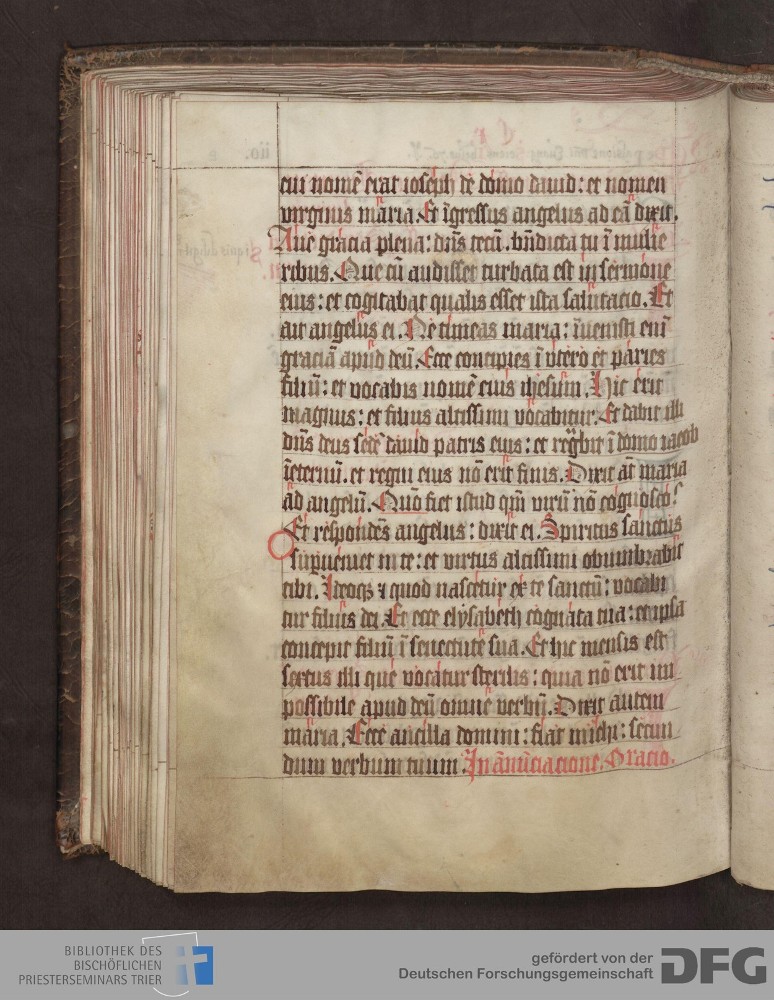 cui nomē erat ioseph de domo dauid: et nomen
virginis maria. Et īgressus angelus ad eā dixit.
Aue gracia plena: dn̄s tecū. bn̄dicta tu ī mulie
ribus. Que cū audisset turbata est in sermone
eius: et cogitabat qualis esset ista salutacio. Et
ait angelus ei. Ne timeas maria: īuenisti enī
graciā apud deū. Ecce concipies ī vtero et paries
filiū: et vocabis nomē eius ihesum. Hic erit
magnus: et filius altissimi vocabitur. Et dabit illi
dn̄s deus sedē dauid patris eius: et regn̄bit ī domo iacob
īeternū. et regni eius nō erit finis. Dixit āt maria
ad angelū. Quō fiet istud qm̄ virū nō cognosco?
Et respondēs angelus: dixit ei. Spiritus sanctus
supueniet in te: et virtus altissimi obumbrabit
tibi. Ideoqꝫ ⁊ quod nascetur ex te sanctū: vocabi
tur filius dei. Et ecce elysabeth cognata tua: et ipsa
concepit filiū ī senectute sua. Et hic mensis est
sextus illi que vocatur sterilis: quia nō erit im
possibile apud deū omne verbū. Dixit autem
maria. Ecce ancilla domini: fiat michi: secun
dum verbum tuum. In ānūciacione. Oracio.
BIBLIOTHEK DES
BISCHÖFLICHEN
PRIESTERSEMINARS TRIER
gefördert von der
Deutschen Forschungsgemeinschaft
DFG